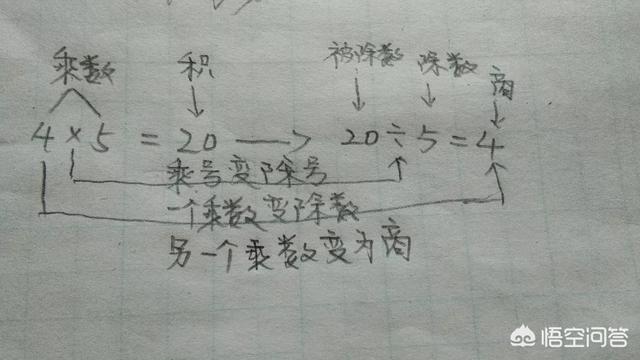 乘数 积 被除数 除数 商
4×5=20—>20÷5=4
乘号变除号
一个乘数变除数
另一个乘数变为商
悟空问答